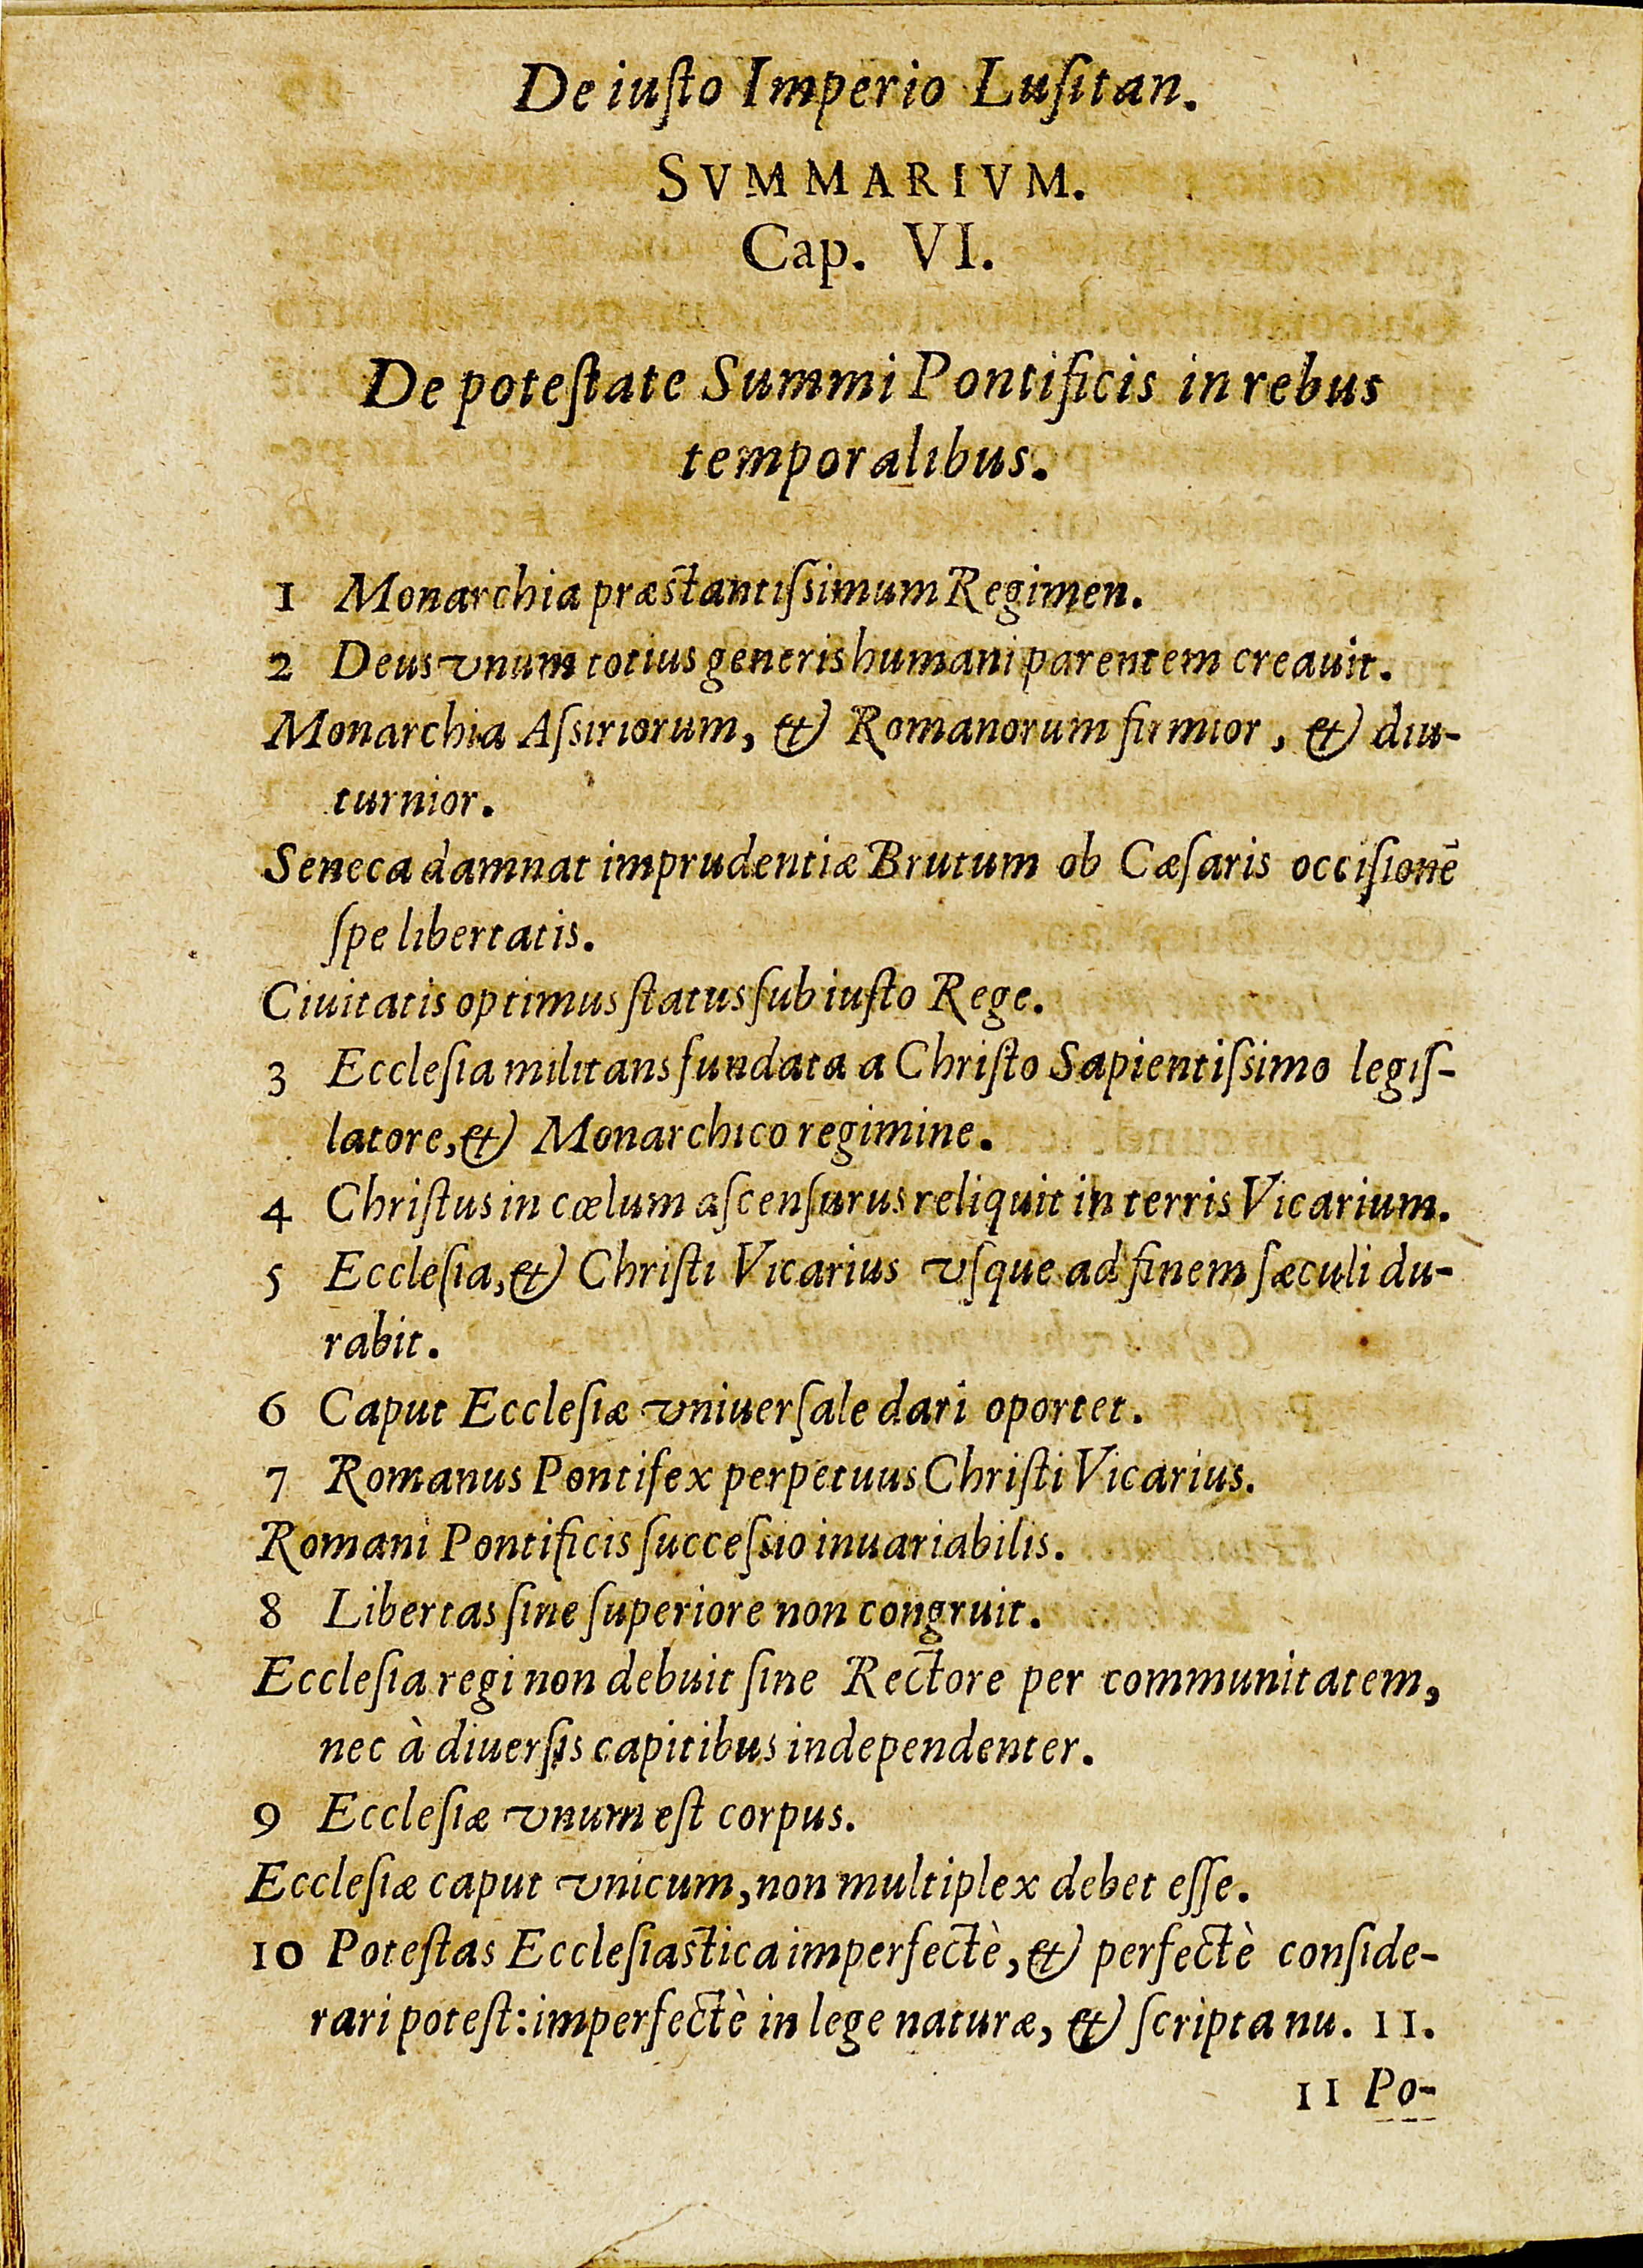 De iuſto Imperio Luſitan.
SVMMARIVM.
Cap. VI.
De poteſtate Summi Pontificis in rebus
temporalibus.
1 Monarchia præstantiſsimum Regimen.
2 Deus vnum totius generis humani parentem creauit.
Monarchia Aſsiriorum, & Romanorum firmior, & diu-
turnior.
Seneca damnat imprudentiæ Brutum ob Cæſaris occiſionē
ſpe libertatis.
Ciuitatis optimus ſtatus ſub iuſto Rege.
3 Eccleſia militans fundata a Chriſto Sapientiſsimo legiſ-
latore, & Monarchico regimine.
4 Chriſtus in cœlum aſcenſurus reliquit in terris Vicarium.
5 Eccleſia, & Chriſti Vicarius vſque ad finem ſæculi du-
rabit.
6 Caput Eccleſiæ vniuerſale dari oportet.
7 Romanus Pontifex perpetuus Chriſti Vicarius.
Romani Pontificis ſucceſsio inuariabilis.
8 Libertas ſine ſuperiore non congruit.
Eccleſia regi non debuit ſine Rectore per communitatem,
nec à diuerſis capitibus independenter.
9 Eccleſiæ vnum eſt corpus.
Eccleſiæ caput vnicum, non multiplex debet eſſe.
10 Poteſtas Eccleſiastica imperfectè, & perfectè conſide-
rari poteſt: imperfectè in lege naturæ, & ſcripta nu. 11.
11 Po-